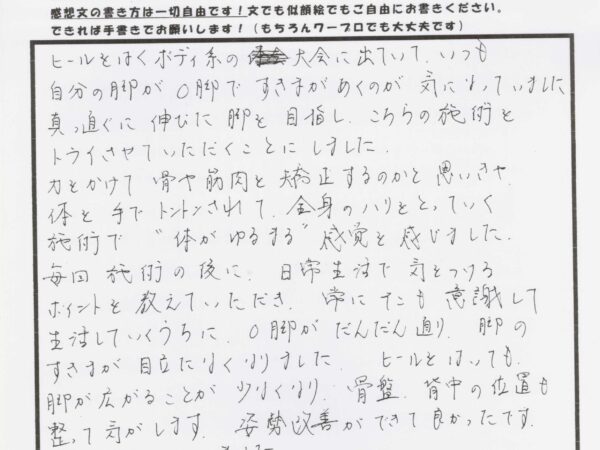 感想文の書き方は一切自由です！文でも似顔絵でもご自由にお書きください。
できれば手書きでお願いします！（もちろんワープロでも大丈夫です）
ヒールをはくボディ系の 大会に出ていて、いつも
自分の脚が O脚で すきまがあくのが 気になっていました
真っ直ぐに 伸びた 脚を 目指し、こちらの施術を
トライさせていただくことに しました。
力をかけて 骨や筋肉を 矯正するのかと 思いきや、
体を 手で トントンされて、全身の ハリをとっていく
施術で "体がゆるまる" 感覚を 感じました。
毎回 施術の後に、日常生活で 気をつける
ポイントを 教えていただき、常に そこも 意識して
生活していくうちに、O脚が だんだん 直り、脚の
すきまが 目立たなくなりました。 ヒールを はいても、
脚が 広がることが 少なくなり、骨盤、背中の 位置も
整って 気がします。姿勢改善ができて 良かったです。